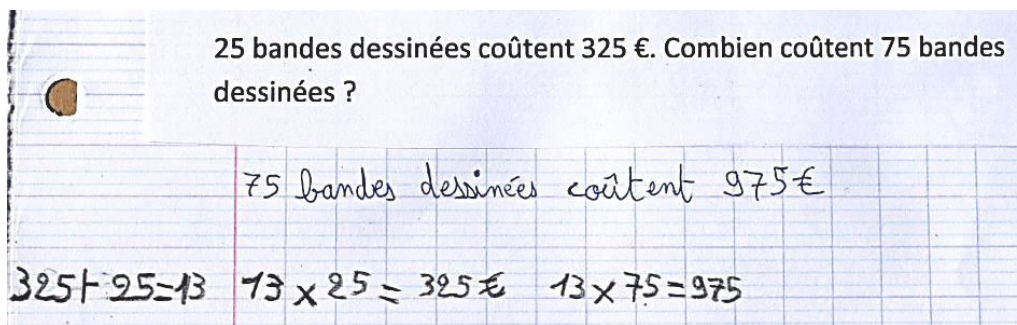 25 bandes dessinées coûtent 325 €. Combien coûtent 75 bandes
dessinées ?
75 bandes dessinées coûtent 975€
325÷25=13 13 x 25 = 325€ 13 x 75 = 975